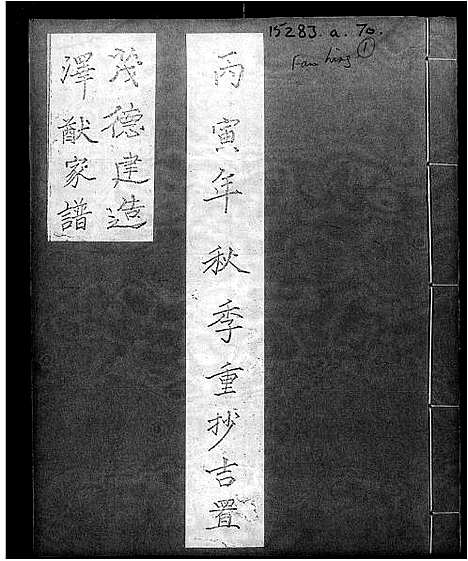 15283. a. 70.
①
丙寅年秋季重抄吉置
茂德建造
澤猷家譜